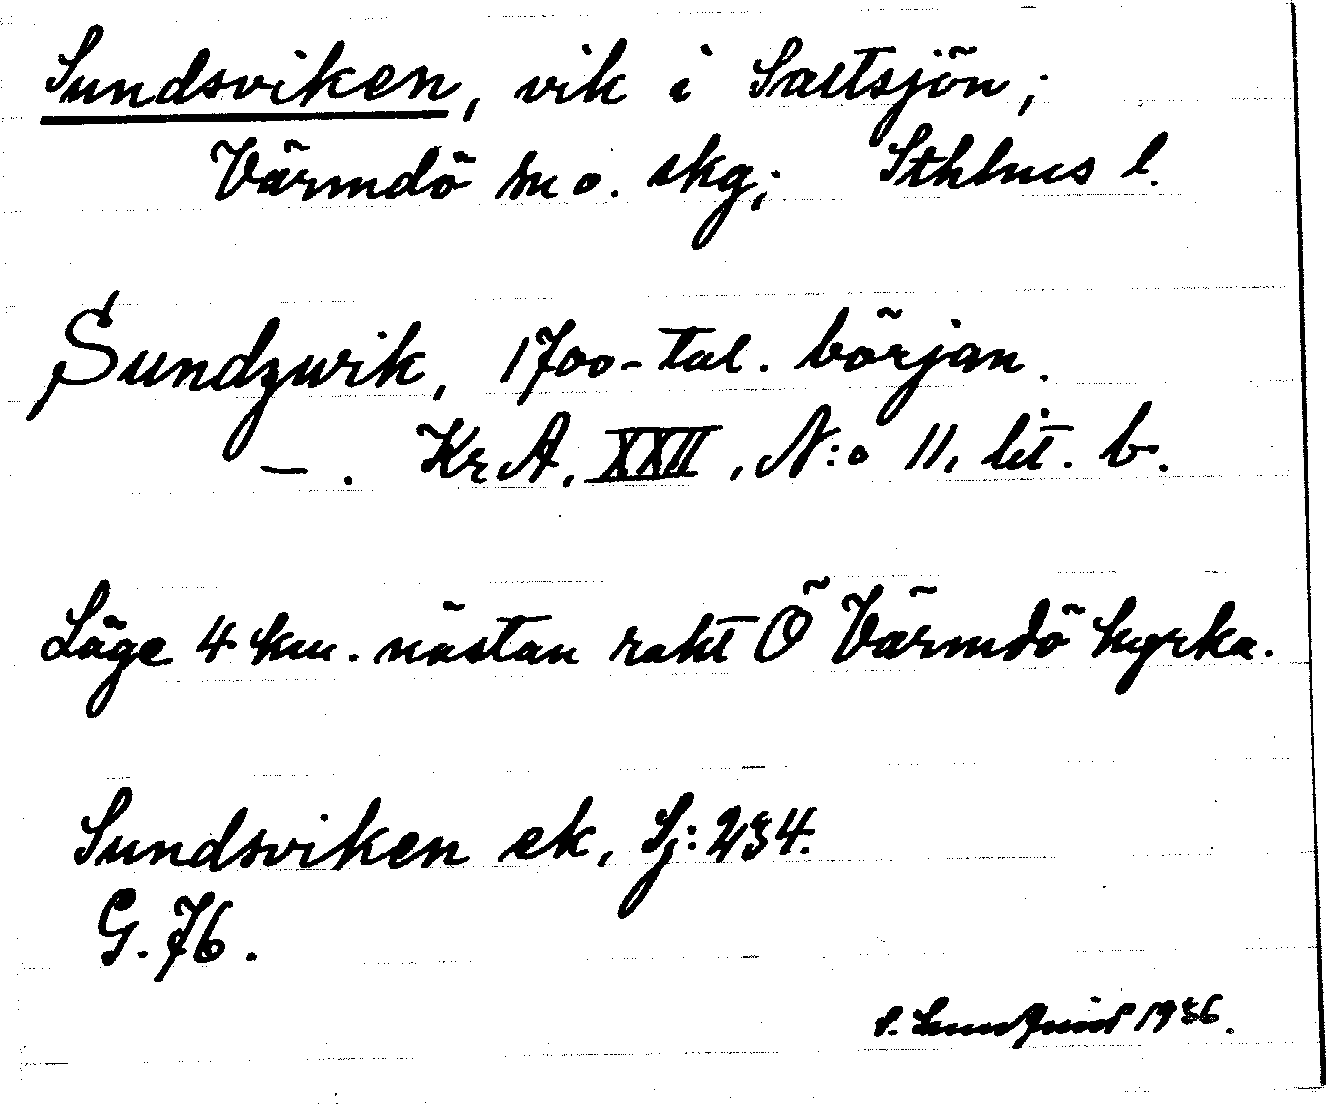 Sundsviken, vik i Saltsjön;
Värmdö sn o. skg; Sthlms l.
Sundzwik, 1700-tal. början.
— . Kr A. XXII, N:o 11, lit. b.
Läge 4 km. nästan rakt Ö Värmdö kyrka.
Sundsviken ek, Sj: 234.
G. 76.
S. Lundqvist 1936.